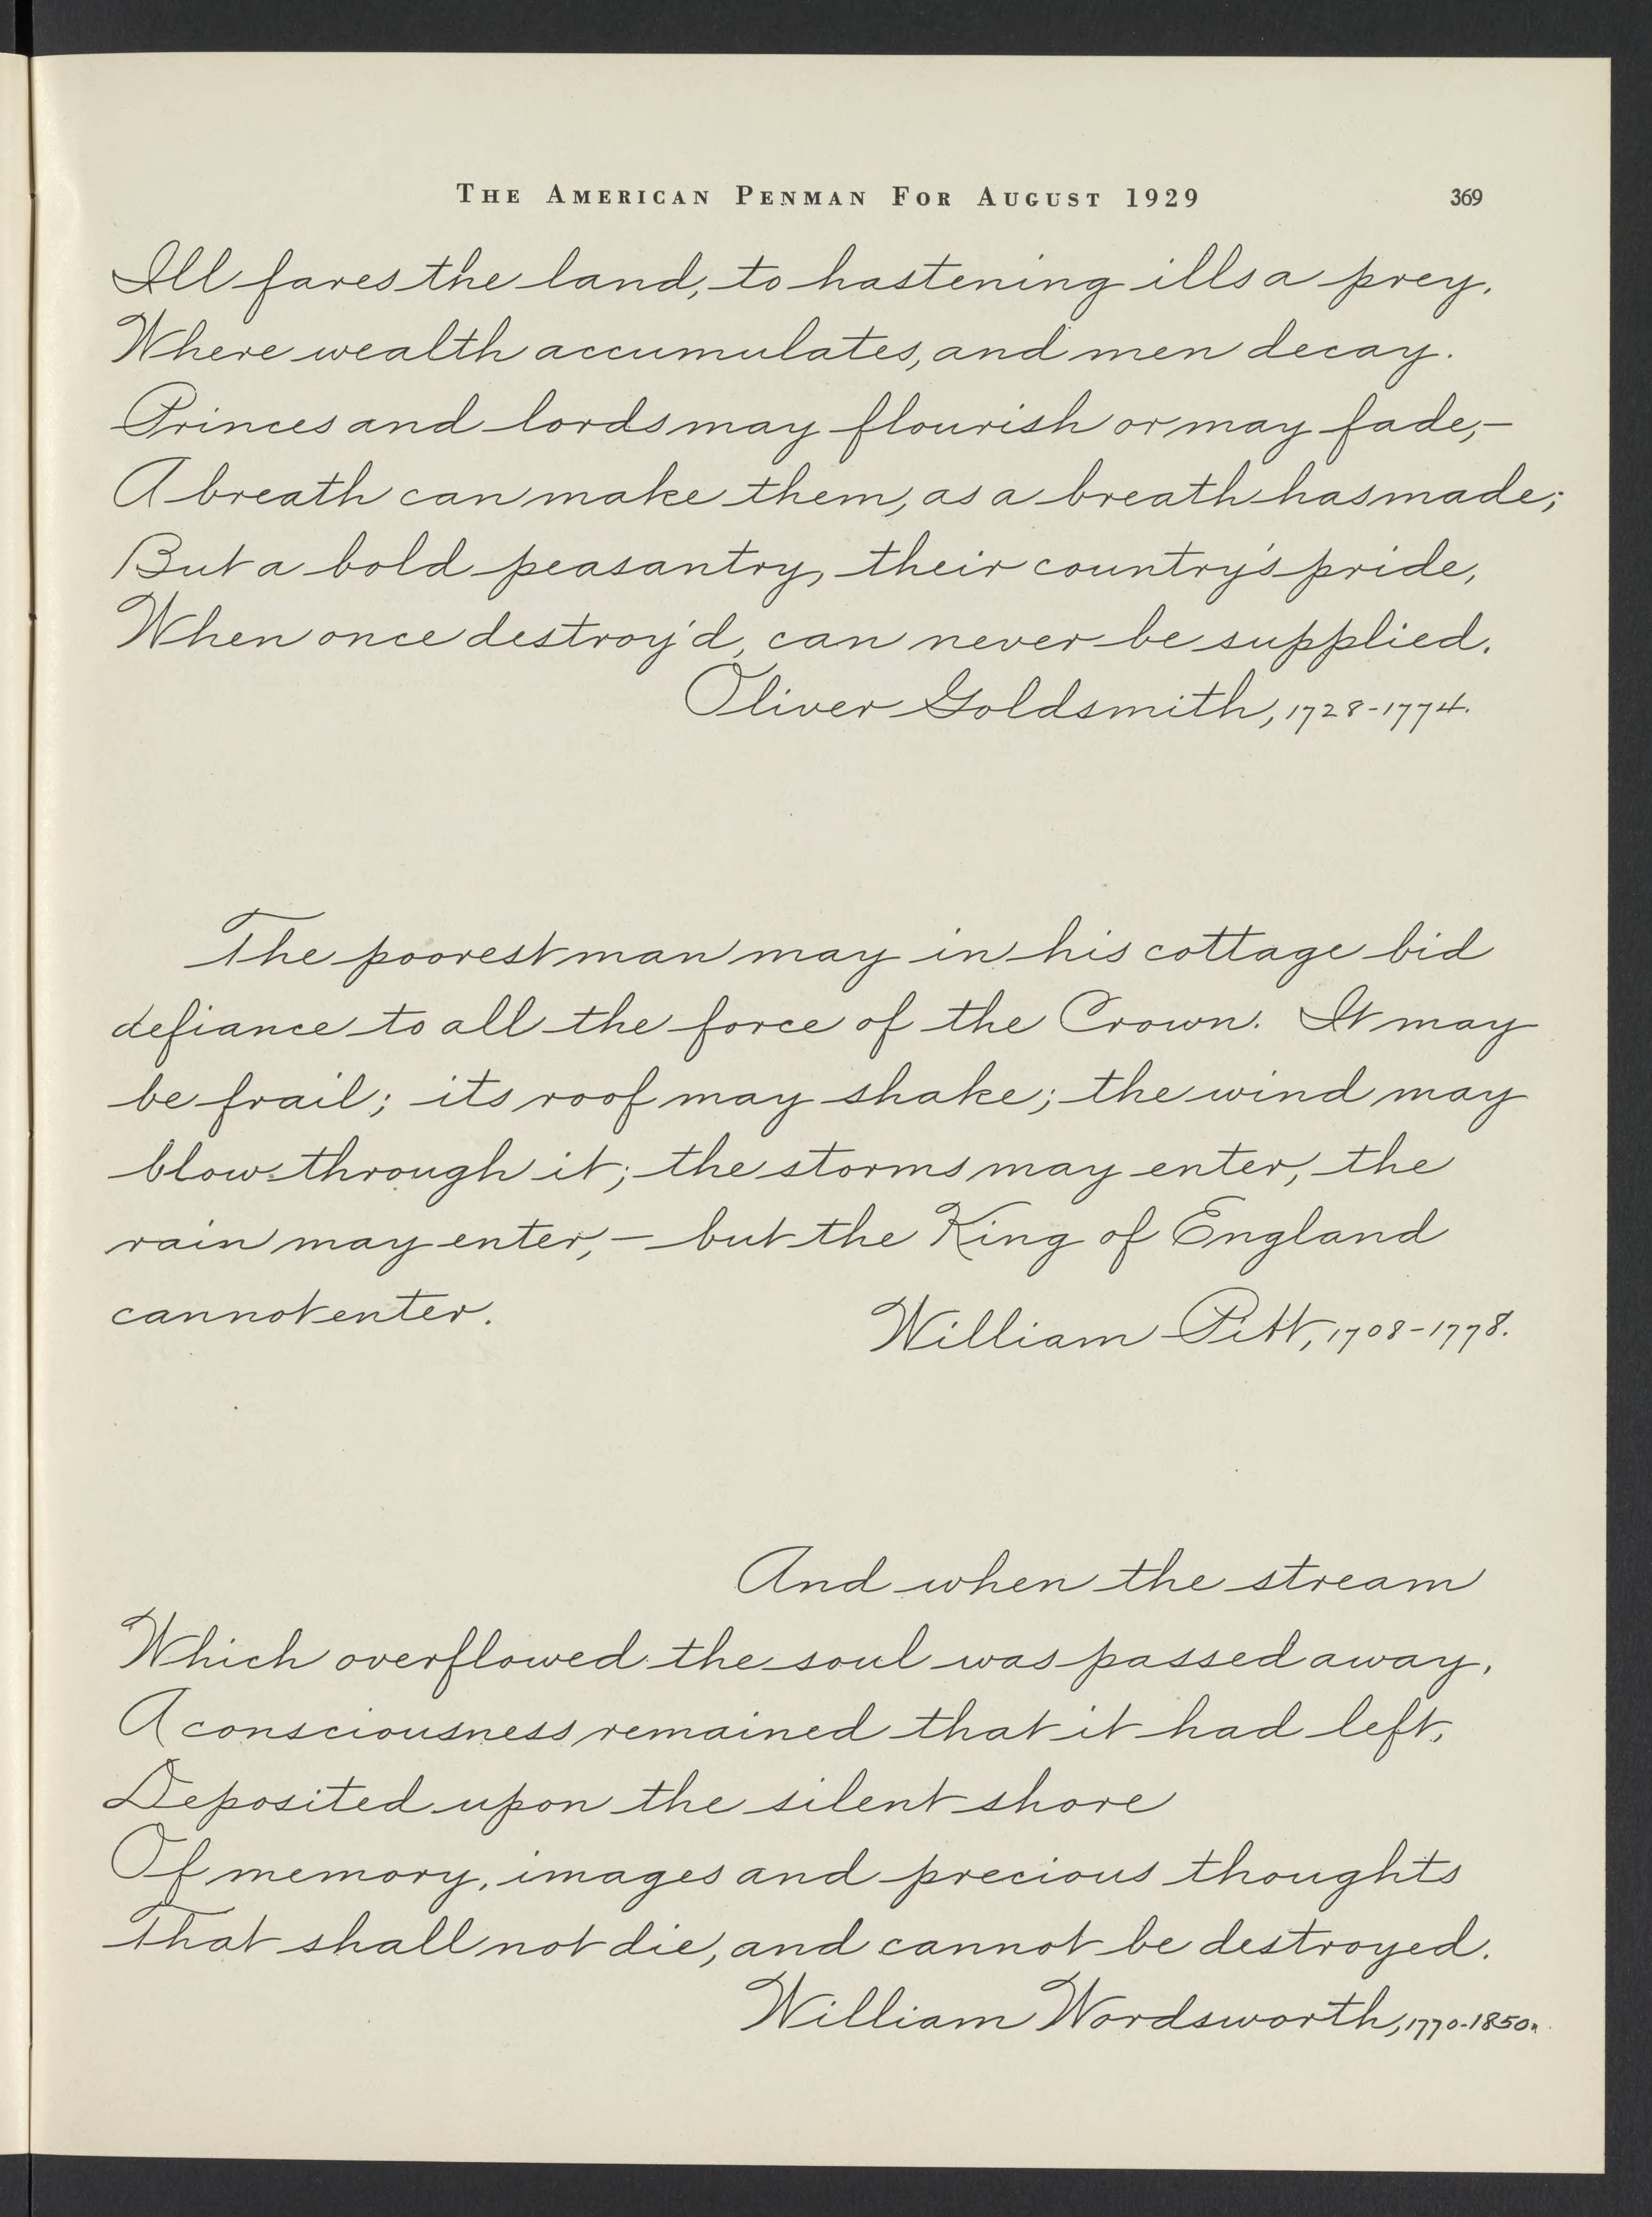 THE AMERICAN PENMAN FOR AUGUST 1929 369
Ill fares the land, to hastening ills a prey,
Where wealth accumulates, and men decay.
Princes and lords may flourish or may fade,—
A breath can make them, as a breath has made;
But a bold peasantry, their country's pride,
When once destroy'd, can never be supplied.
Oliver Goldsmith, 1728-1774.
The poorest man may in his cottage bid
defiance to all the force of the Crown. It may
be frail; its roof may shake; the wind may
blow through it; the storms may enter, the
rain may enter,— but the King of England
cannot enter.
William Pitt, 1708-1778.
And when the stream
Which overflowed the soul was passed away,
A consciousness remained that it had left,
Deposited upon the silent shore
Of memory, images and precious thoughts
That shall not die, and cannot be destroyed.
William Wordsworth, 1770-1850.